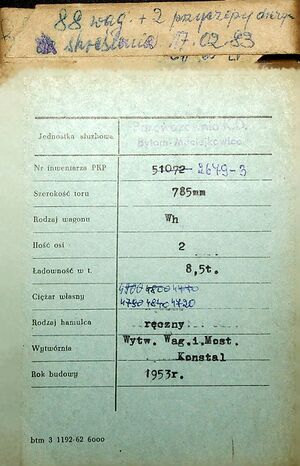 88 wag. + 2 przyczepy
skreślenia 17.02.83
Jednostka służbowa
Bytom-Maciejkowice
Nr inwentarza PKP 51072 - 2649-3
Szerokość toru 785mm
Rodzaj wagonu Wh
Ilość osi 2
Ładowność w t. 8,5t.
Ciężar własny
4840 4720
Rodzaj hamulca ręczny
Wytwórnia Wytw. Wag.i.Most.
Konstal
Rok budowy 1953r.
btm 3 1192-62 6000